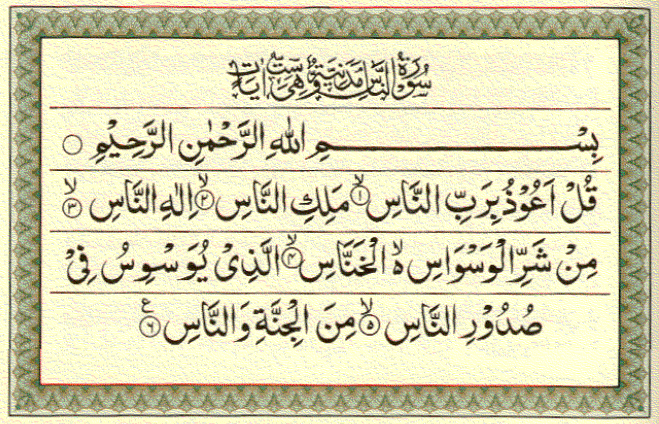 سُوْرَةُ النَّاسِ مَدَنِيَّةٌ وَّهِيَ سِتُّ اٰيَاتٍ
بِسْمِ اللهِ الرَّحْمٰنِ الرَّحِيْمِ ○
قُلْ اَعُوْذُ بِرَبِّ النَّاسِ ۙ﴿۱﴾ مَلِكِ النَّاسِ ۙ﴿۲﴾ اِلٰهِ النَّاسِ ۙ﴿۳﴾
مِنْ شَرِّ الْوَسْوَاسِ ۵ۙ الْخَنَّاسِ ۙ﴿۴﴾ الَّذِیْ يُوَسْوِسُ فِیْ
صُدُوْرِ النَّاسِ ۙ﴿۵﴾ مِنَ الْجِنَّةِ وَالنَّاسِ ع﴿۶﴾